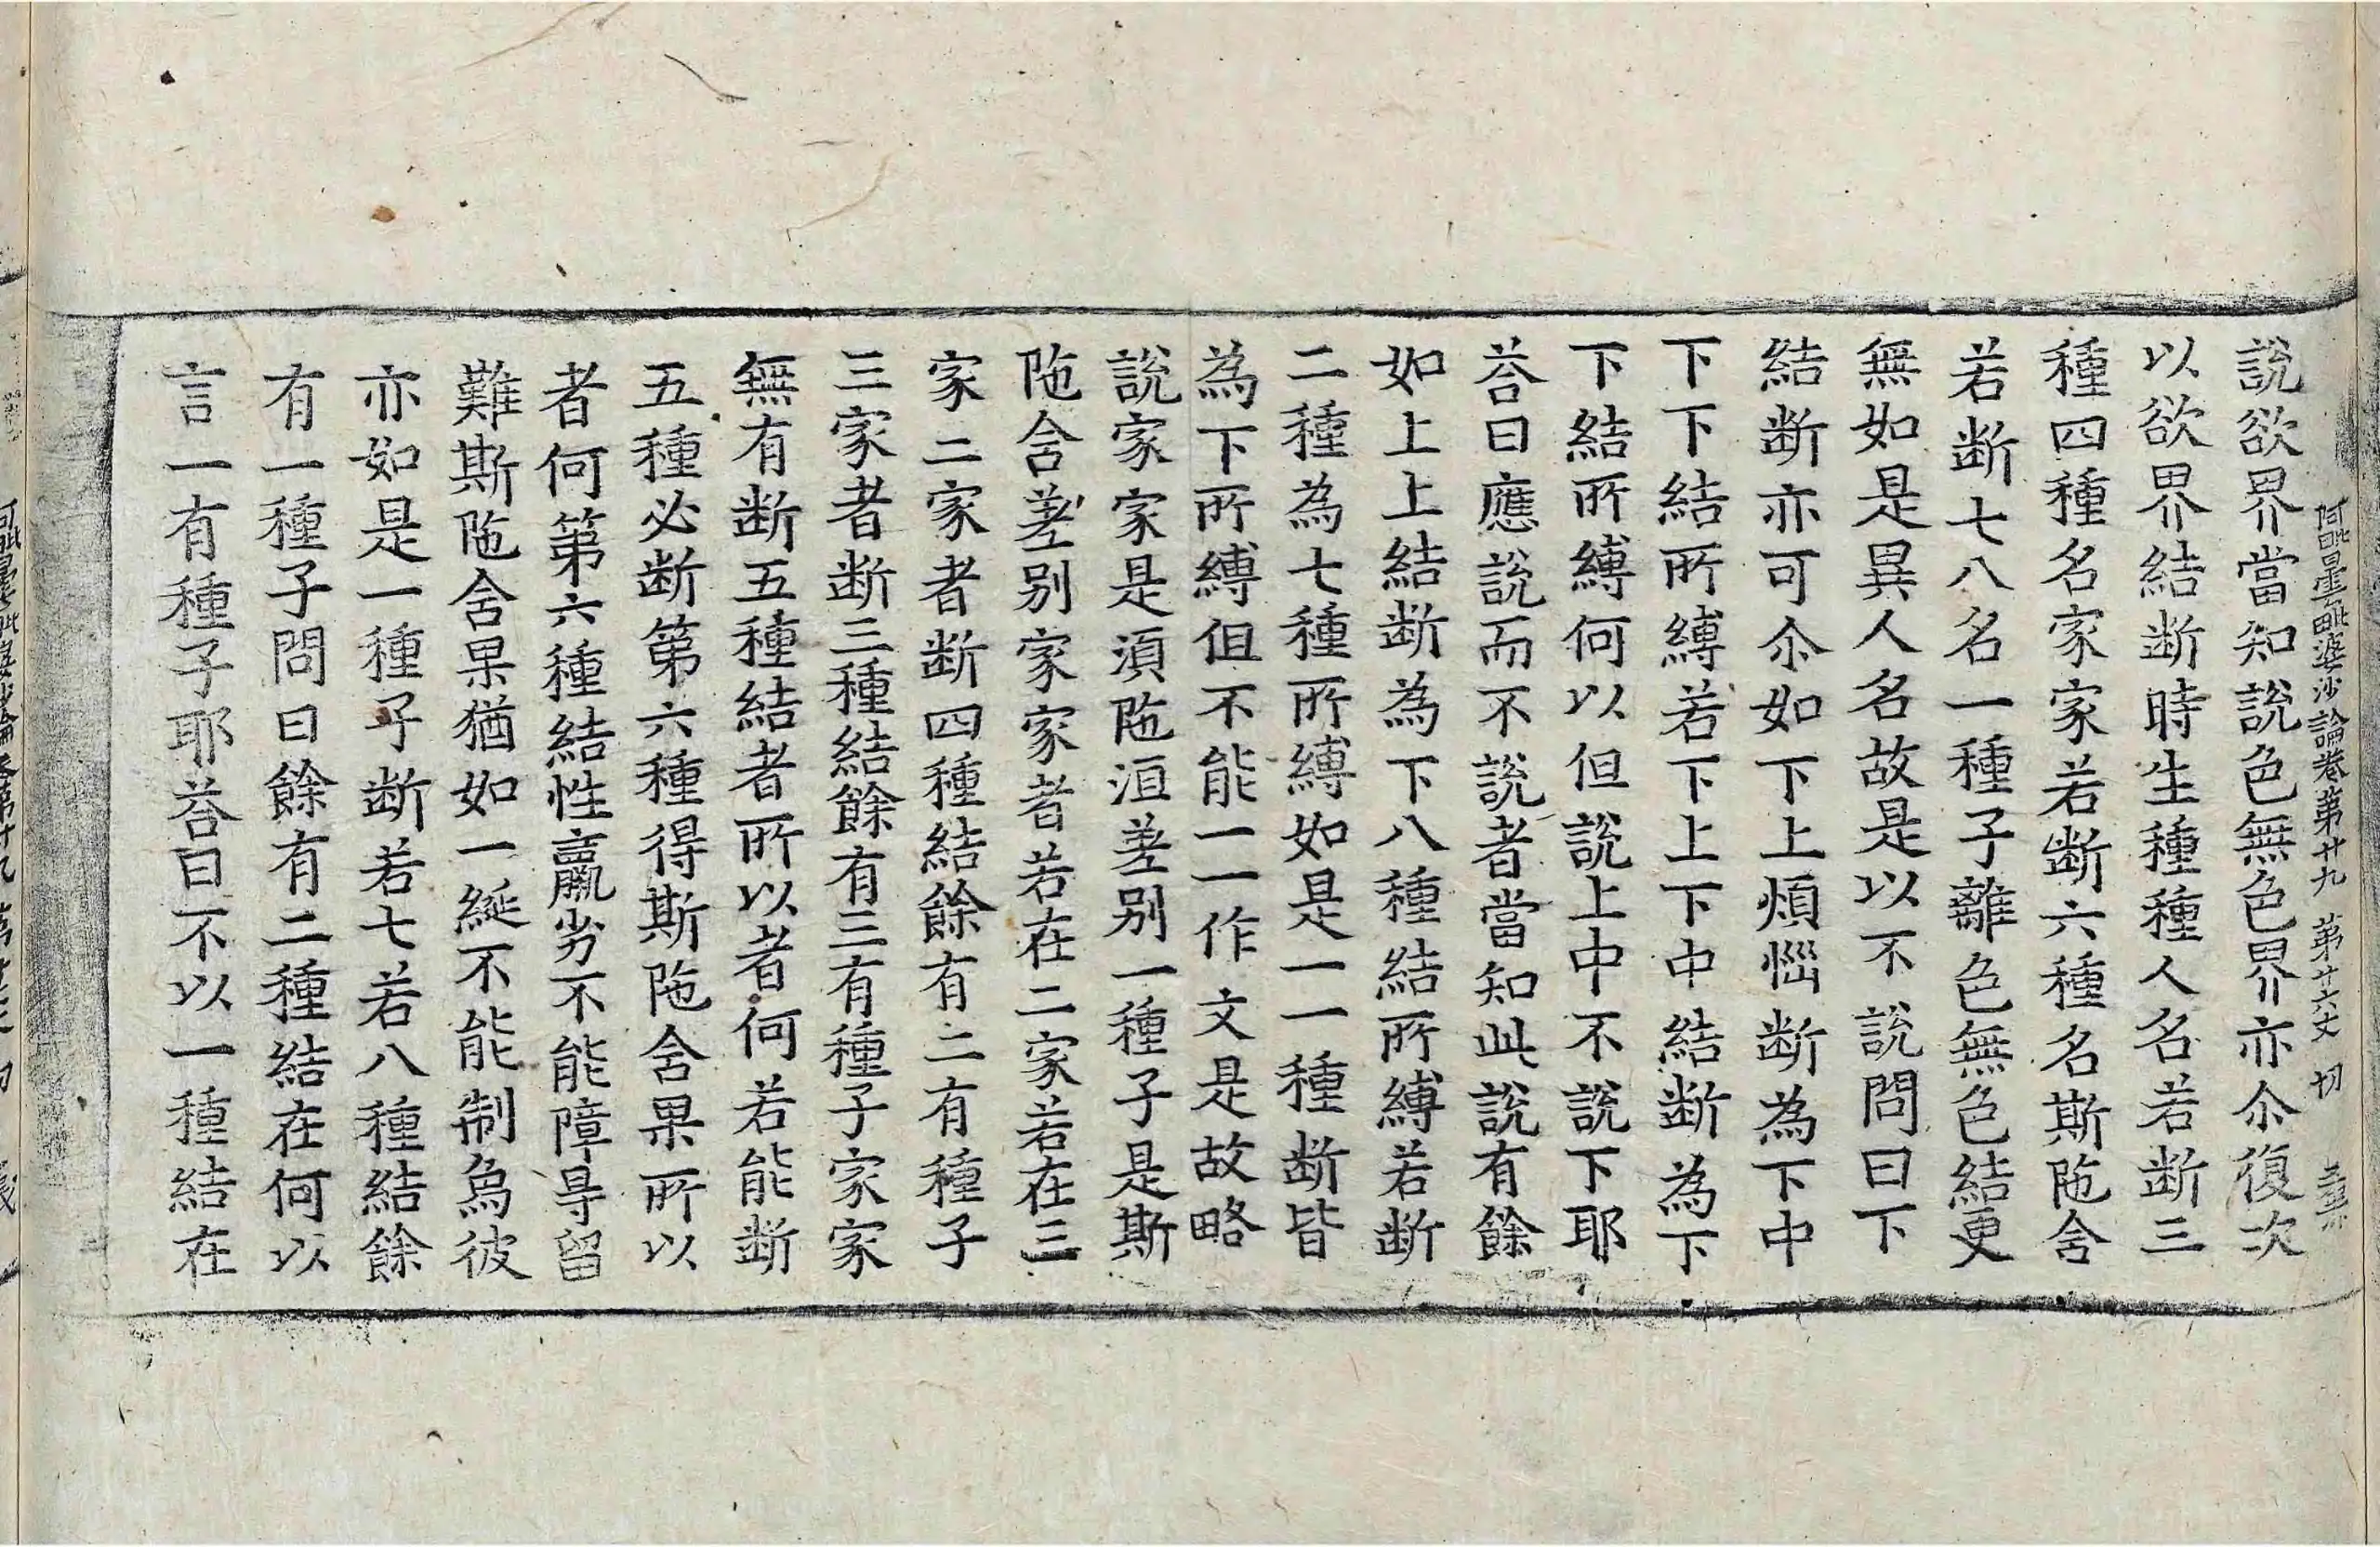 阿毗曇毗婆沙論卷第廿九 第廿六丈 切
說欲界當知說色無色界亦尒復次
以欲界結断時生種種人名若断三
種四種名家家若断六種名斯陁舍
若断七八名一種子離色無色結更
無如是異人名故是以不說問曰下
結断亦可尒如下上煩惱断為下中
下下下結所縛若下上下中結断為下
下結所縛何以但說上中不說下耶
荅曰應說而不說者當知此說有餘
如上上結断為下八種結所縛若断
二種為七種所縛如是一一種断皆
為下所縛但不能一一作文是故略
說家家是湏陁洹差別一種子是斯
陁舍差別家家者若在二家若在三
家二家者断四種結餘有二有種子
三家者断三種結餘有三有種子家家
無有断五種結者所以者何若能断
五種必断第六種得斯陁舍果所以
者何第六種結性羸劣不能障㝵留
難斯陁舍果猶如一綖不能制為彼
亦如是一種子断若七若八種結餘
有一種子問曰餘有二種結在何以
言一有種子耶荅曰不以一種結在